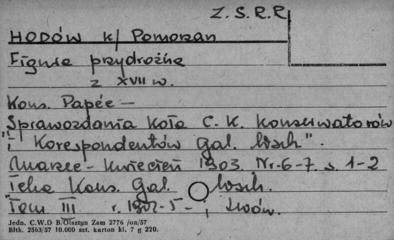 Z.S.R.R
HODÓW k/ Pomorzan
Figura przydrożna
z XVII w.
Kons. Papée —
"Sprawozdania Koła C.K. Konserwatorów
i Korespondentów Gal. Wsch".
Marzec - Kwiecień 1903. Nr-6-7. s. 1-2
Teka Kons. Gal. Wsch.
Tom III r. 1902-5- i Lwów.
Jedn. C.W.D B/Olsztyn Zam 2776 /on/57
Blkt. 2503/57 10.000 szt. karton kl. 7 g 220.